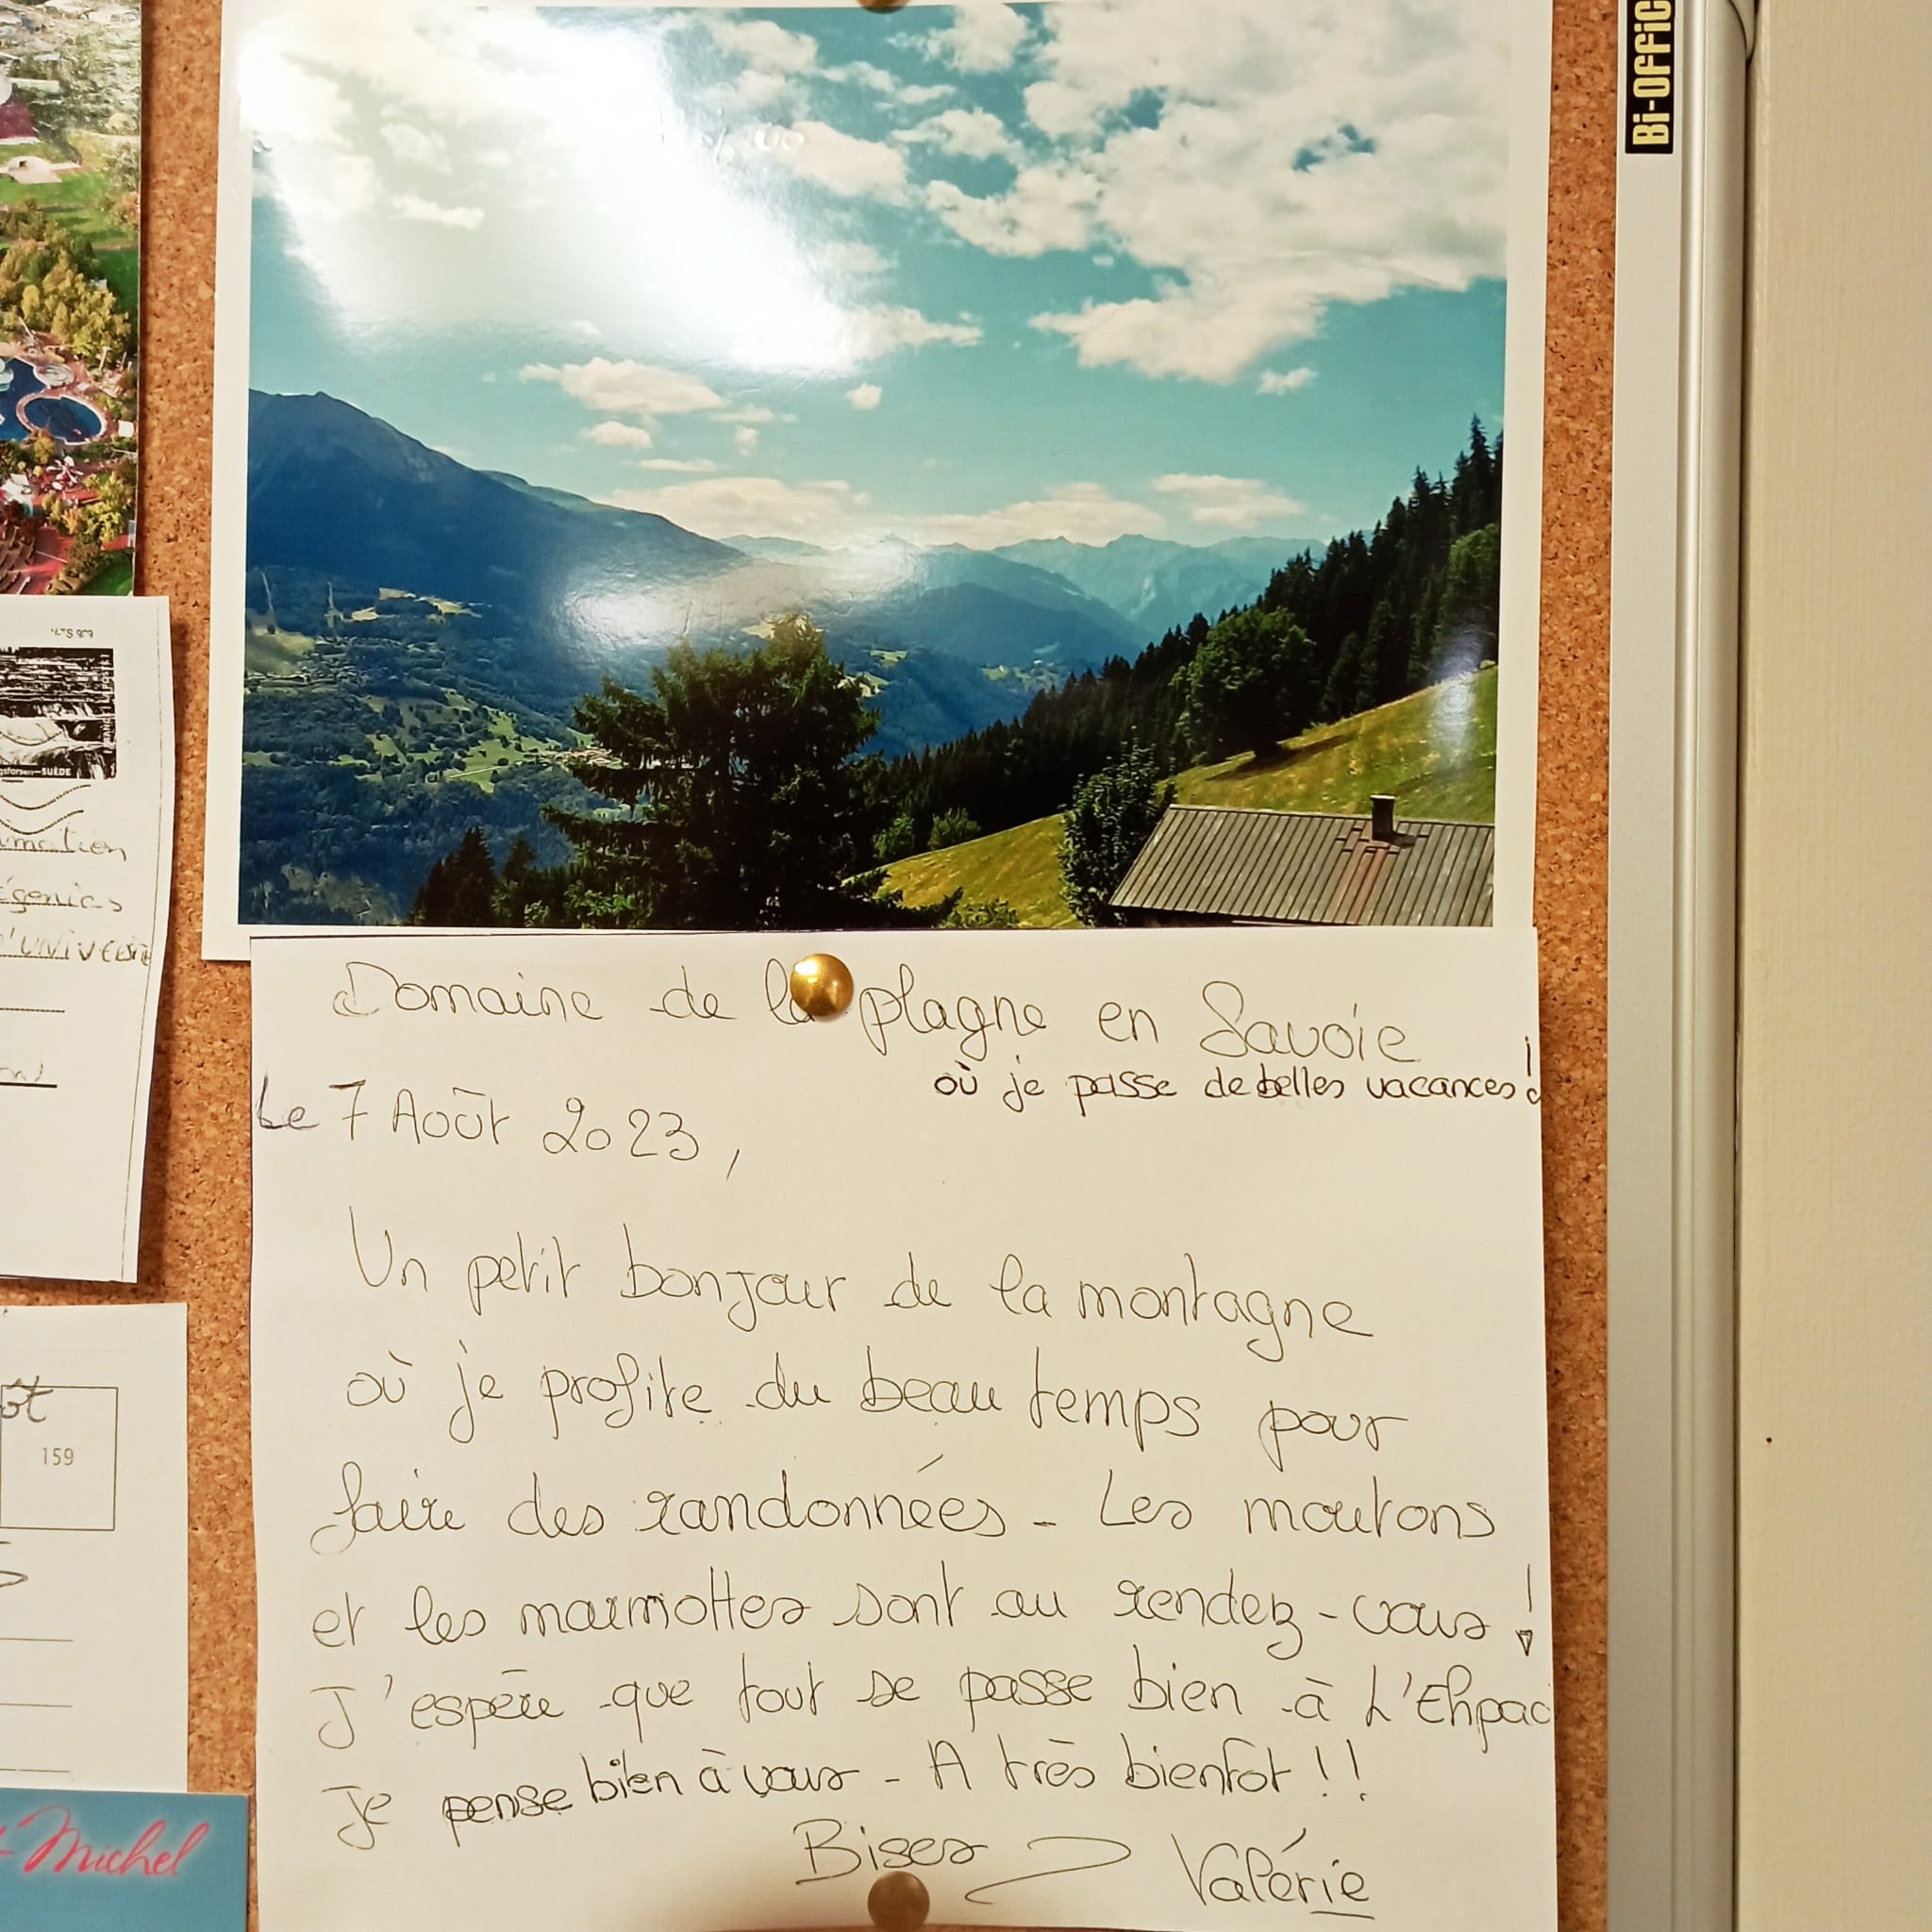 Bi-OFFiC
SUÈDE
mation
égenies
159
Michel
Domaine de la plagne en Savoie
où je passe de belles vacances !
Le 7 Août 2023,
Un petit bonjour de la montagne
où je profite du beau temps pour
faire des randonnées - Les moutons
et les marmottes sont au rendez-vous !
J'espère que tout se passe bien à L'Ehpad
Je pense bien à vous - A très bientôt !!
Bises Valérie